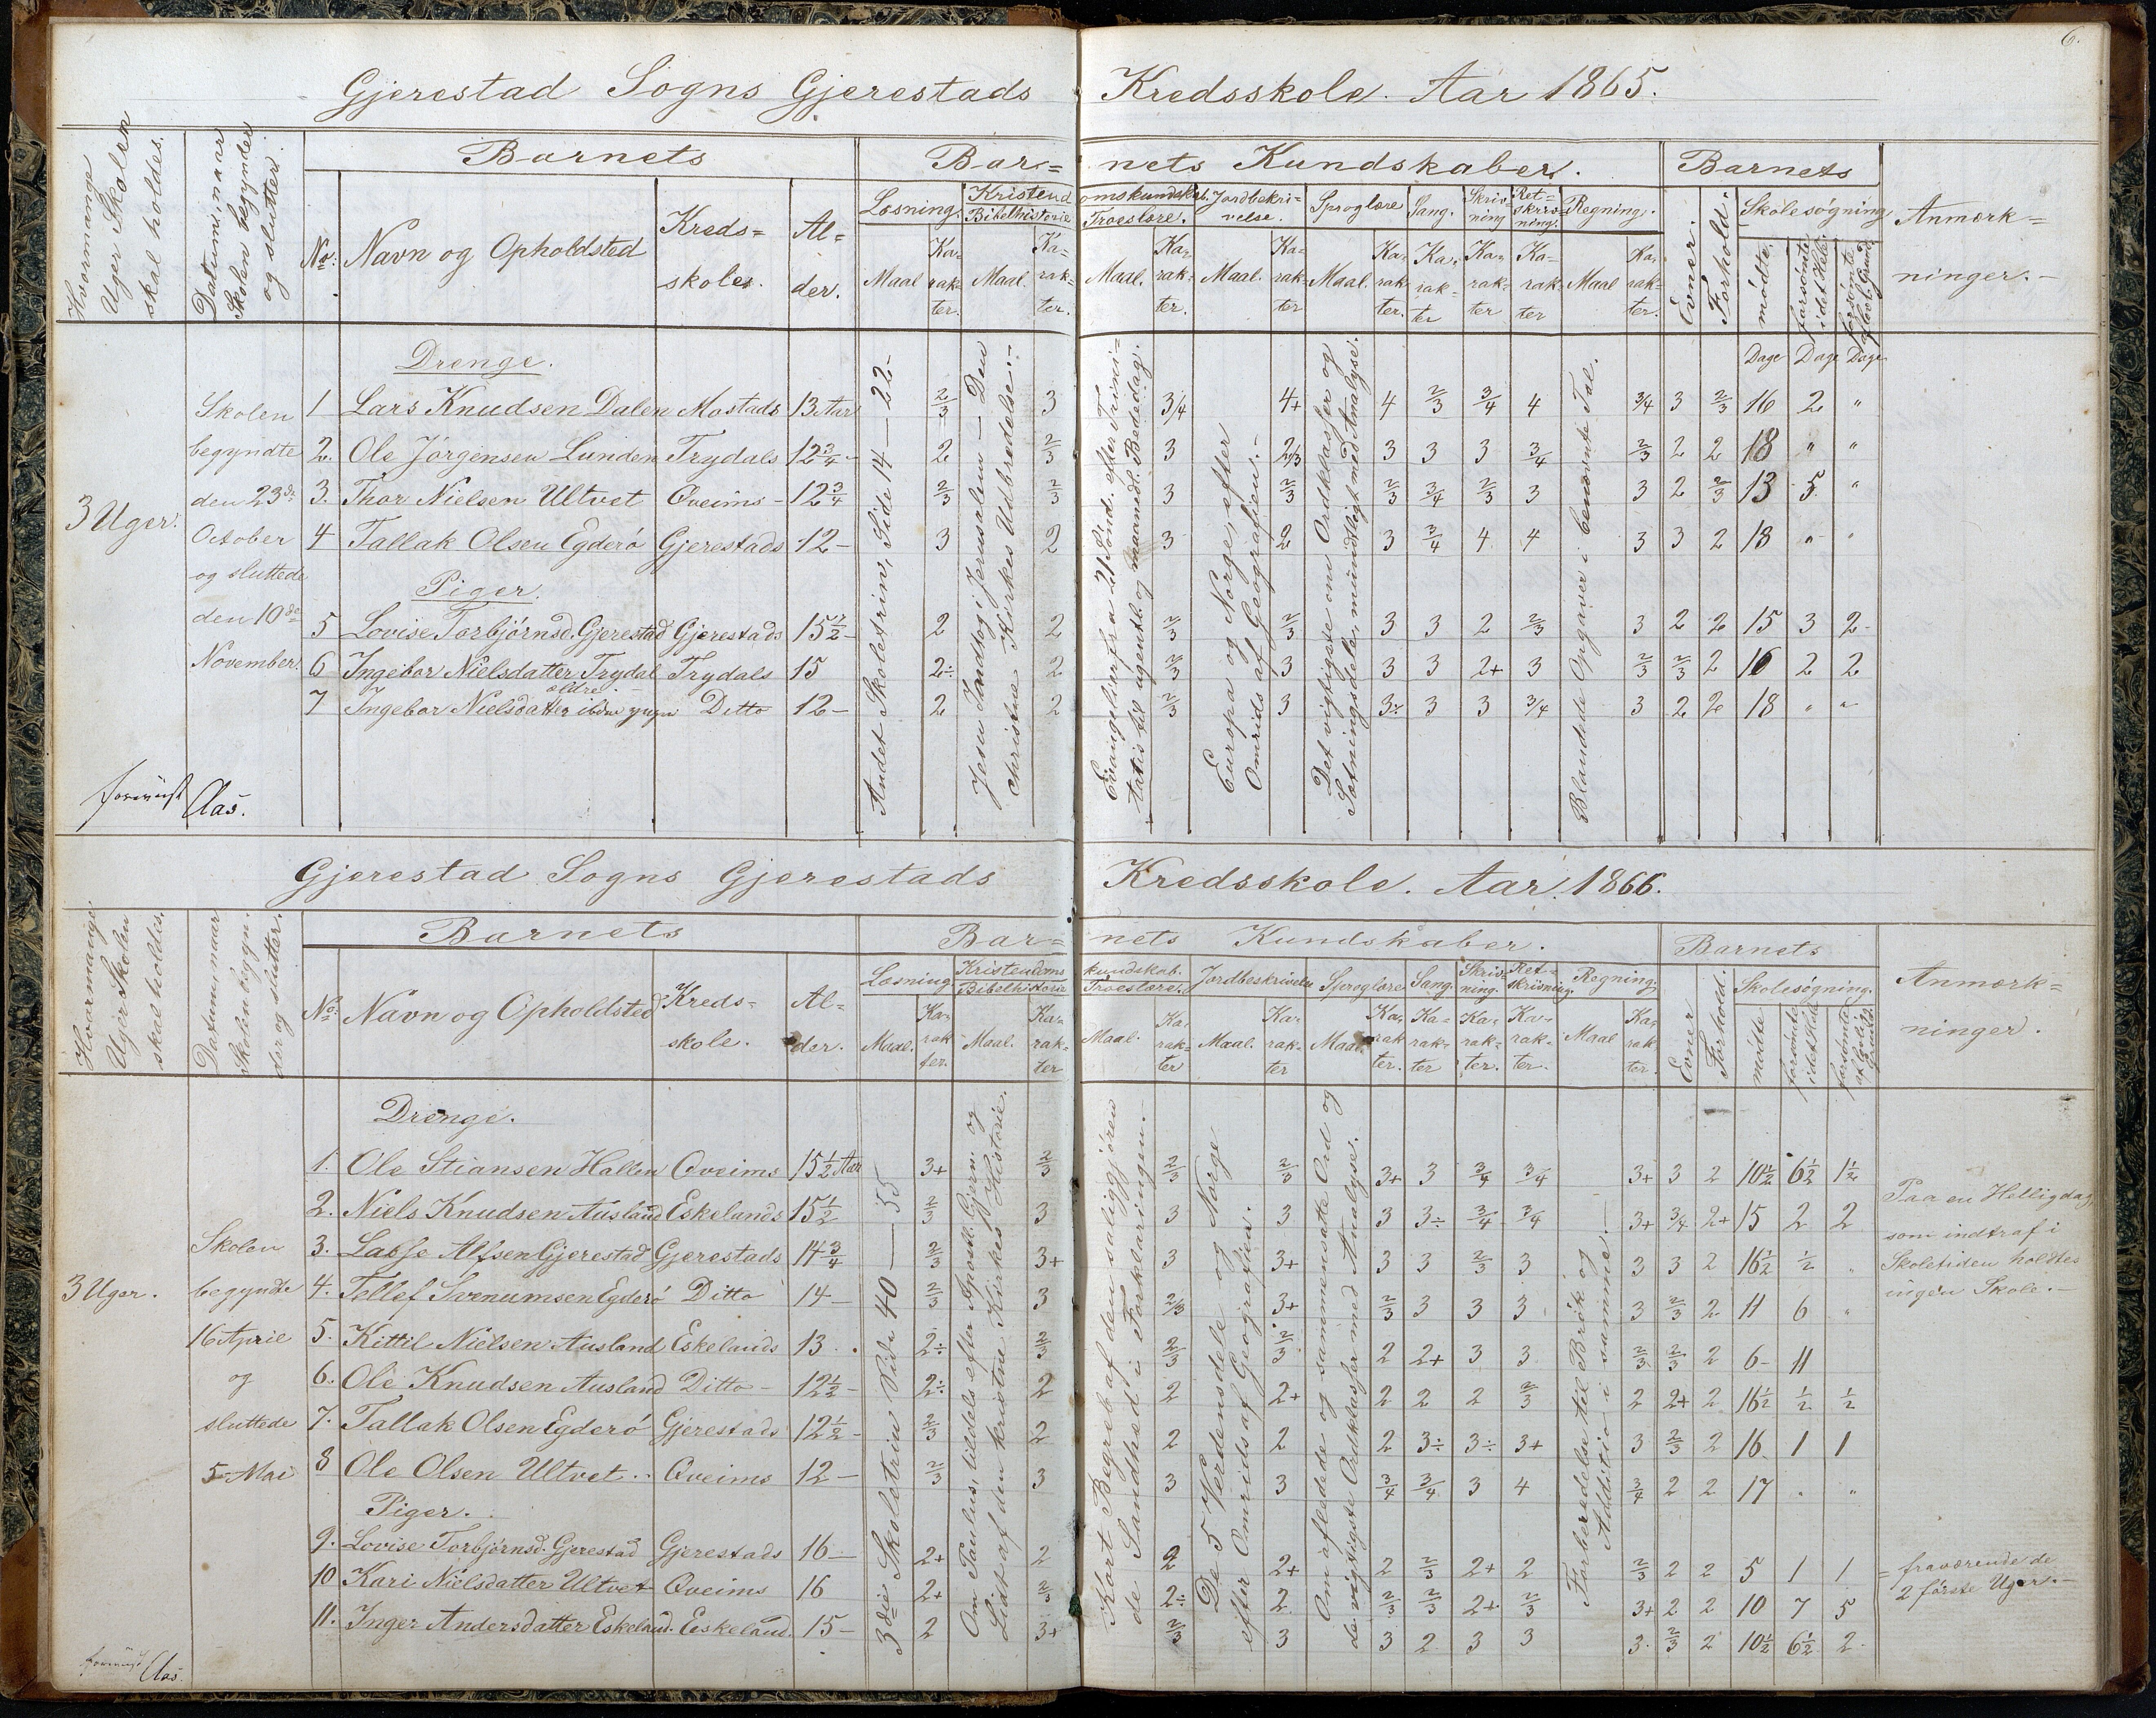 6.
Gjerestad Sogns Gjerestads Kredsskole. Aar 1865.
Hvormange Uger Skolen skal holdes.
Datum, naar Skolen begynder og slutter.
Barnets
Barnets Kundskaber.
Barnets
Anmærkninger.
No. Navn og Opholdsted Kredsskoler. Alder.
Læsning. Kristendomskundskab. Jordbeskrivelse. Sproglære Sang. Skrivning Retskrivning. Regning.
Bibelhistorie Troeslære.
Maal Karakter. Maal. Karakter. Maal. Karakter. Maal. Karakter Maal. Karakter. Karakter Karakter Karakter Maal Karakter.
Evner. Forhold. Skolesøgning
mødte forsømte i det Hele. forsømte af lovl. Grund
Dage Dage Dage
3 Uger.
Skolen
begyndte
den 23de
October
og sluttede
den 10de
November.
Andet Skoletrin, Side 14 – 22
Jesu Indtog i Jerusalem – Den christne Kirkes Udbredelse.
Evangelier fra 21 Sønd. efter Trinitatis til ugentl. og maanedl. Bededag.
Europa og Norge, efter Omrids af Geografien.
Det vigtigste om Ordklasser og Sætningsdele, mundtligt med Analyse.
Blandede Opgaver i benævnte Tal.
Drenge.
1 Lars Knudsen Dalen Mostads 13 Aar 2/3 3 3/4 4+ 4 2/3 3/4 4 3/4 3 2/3 16 2 "
2. Ole Jørgensen Lunden Trydals 12 3/4 2 2/3 3 2/3 3 3 3 3/4 2/3 2 2 18 " "
3. Thor Nielsen Ultvet Qveims 12 3/4 2/3 2/3 3 2/3 2/3 3/4 2/3 3 3 2 2/3 13 5 "
4 Tallak Olsen Egderø Gjerestads 12 3 2 3 2 3 3/4 4 4 3 3 2 18 " "
Piger.
5 Lovise Torbjørnsd. Gjerestad Gjerestads 15 1/2 2 2 2/3 2/3 3 3 2 2/3 3 2 2 15 3 2
6 Ingebor Nielsdatter Trydal ældre. Trydals 15 2÷ 2 2/3 3 3 3 2+ 3 2/3 2/3 2 16 2 2
7 Ingebor Nielsdatter ibdm yngre Ditto 12 2 2 2/3 3 3÷ 3 3 3/4 3 2 2 18 " "
Aas.
Gjerestad Sogns Gjerestads Kredsskole. Aar 1866.
Hvormange Uger Skolen skal holdes.
Datum, naar Skolen begynder og slutter.
Barnets
Barnets Kundskaber.
Barnets
Anmærkninger.
No. Navn og Opholdsted Kredsskole. Alder.
Læsning Kristendomskundskab. Jordbeskrivelse Sproglære Sang. Skrivning. Retskrivning. Regning.
Bibelhistorie Troeslære.
Maal. Karakter. Maal. Karakter Maal. Karakter Maal. Karakter Maal. Karakter. Karakter Karakter. Karakter. Maal Karakter.
Evner Forhold. Skolesøgning.
mødte forsømte i det Hele forsømte af lovlig Grund
3 Uger.
Skolen
begyndte
16 April
og
sluttede
5 Mai
3die Skoletrin Side 40 – 55
Om Paulus, tildels efter Apostl. Gjern. og Lidt af den kristne Kirkes Historie.
Kort Begreb af den saliggjørende Sandhed i Forklaringen.
De 5 Verdensdele og Norge efter Omrids af Geografien.
Om afledede og sammensatte Ord og de vigtigste Ordklasser med Analyse.
Forberedelse til Brøk og Addition i samme.
Drenge.
1. Ole Stiansen Hallen Qveims 15 1/2 Aar 3+ 2/3 2/3 2/3 3+ 3 3/4 3/4 3+ 3 2 10 1/2 6 1/2 1 1/2
2. Niels Knudsen Ausland Eskelands 15 1/2 2/3 3 3 3 3 3÷ 3/4 3/4 3+ 3/4 2+ 15 2 2
3. Lasse Alfsen Gjerestad Gjerestads 14 3/4 2/3 3+ 3 3+ 3 3 2/3 3 3 3 2 16 1/2 1/2 "
4. Tellef Svenumsen Egderø Ditto 14 2/3 3 2/3 3+ 2/3 3 3 3 3 2/3 2 11 6 "
5. Kittil Nielsen Ausland Eskelands 13 2÷ 2/3 2/3 2/3 2 2+ 3 3 2/3 2/3 2 6 11
6. Ole Knudsen Ausland Ditto 12 1/2 2÷ 2 2 2+ 2 2 2 2/3 2 2+ 2 16 1/2 1/2 1/2
7. Tallak Olsen Egderø Gjerestads 12 1/2 2/3 2 2 2 2 3÷ 3÷ 3+ 3 2/3 2 16 1 1
8 Ole Olsen Ultvet Qveims 12 2/3 3 3 3 3/4 3/4 3 4 3/4 2 2 17 " "
Piger.
9. Lovise Torbjørnsd. Gjerestad Gjerestads 16 2+ 2 2 2+ 2 2/3 2+ 2 2/3 2 2 5 1 1 = fraværende de
10 Kari Nielsdatter Ultvet Qveims 16 2+ 2/3 2÷ 2 2/3 2/3 2+ 2/3 3+ 2 2 10 7 5 2 første Uger.
11. Inger Andersdatter Eskeland. Eeskeland. 15 2 3+ 2/3 3 3 2 3 3 3 2/3 2 10 1/2 6 1/2 2
Paa en Helligdag,
som indtraf i
Skoletiden holdtes
ingen Skole.
Aas.